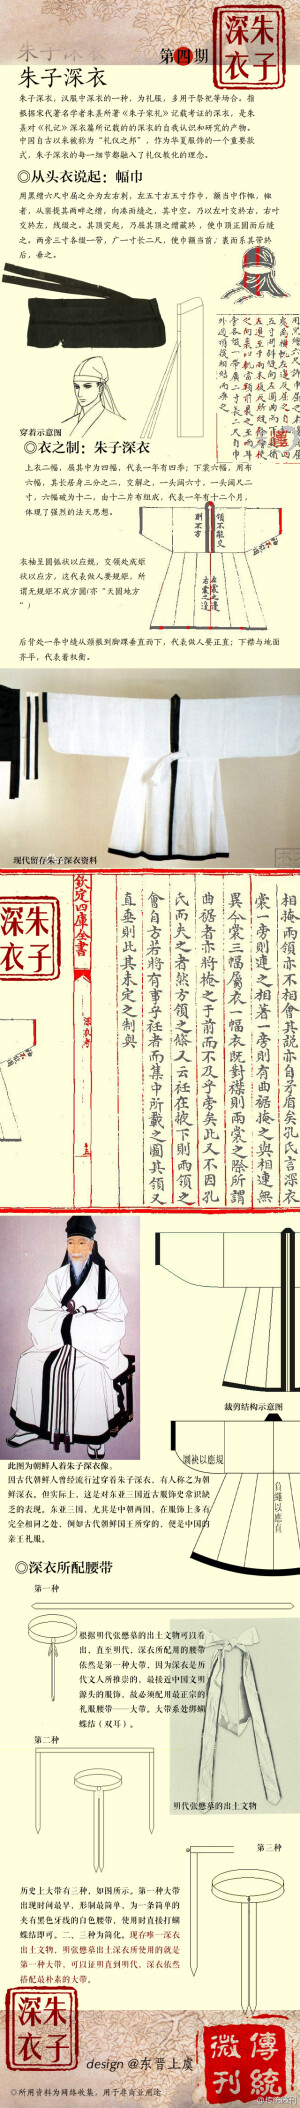 朱子深衣
第四期
朱子深衣
朱子深衣，汉服中深衣的一种，为礼服，多用于祭祀等场合。指
根据宋代著名学者朱熹所著《朱子家礼》记载考证的深衣，是朱
熹对《礼记》深衣篇所记载的的深衣的自我认识和研究的产物。
中国自古以来被称为“礼仪之邦”，作为华夏服饰的一个重要款
式，朱子深衣的每一细节都融入了礼仪教化的理念。
◎从头衣说起：幅巾
用黑缯六尺中屈之分为左右刺，左五寸右五寸作巾，额当中作㡇，㡇
后，垂之。
穿着示意图
◎衣之制：朱子深衣
上衣二幅，屈其中为四幅，代表一年有四季；下裳六幅，用布
六幅，其长居身三分之二，交解之，一头阔六寸，一头阔尺二
寸，六幅破为十二，由十二片布组成，代表一年有十二个月，
体现了强烈的法天思想。
衣袖呈圆弧状以应规，交领处成矩
状以应方，这代表做人要规矩，所
谓无规矩不成方圆(亦“天圆地方
”)
后背处一条中缝从颈根到脚踝垂直而下，代表做人要正直；下襟与地面
齐平，代表着权衡。
现代留存朱子深衣资料
欽定四庫全書
深衣考
相掩兩領亦不相會其説亦自矛盾矣孔氏言深衣
裳一旁則連之相著一旁則有曲裾掩之與相連無
異今裳三幅屬衣一幅衣既對襟則兩裳之際所謂
曲裾者亦將掩之于前而不及乎旁矣此又不因孔
氏而失之者然方領之俗又云衽在掖下則兩領之
會自方若將有事乎衽者而集中所載之圖其領又
直垂則此其未定之制與
朱子深衣
裁剪结构示意图
圓袂以應規
負繩以應直
此图为朝鲜人着朱子深衣像。
因古代朝鲜人曾经流行过穿着朱子深衣，有人称之为朝
鲜深衣。但实际上，这是对东亚三国近古服饰史常识缺
乏的表现。东亚三国，尤其是中朝两国，在服饰上多有
完全相同之处，例如古代朝鲜国王所穿的，便是中国的
亲王礼服。
◎深衣所配腰带
第一种
根据明代张懋墓的出土文物可以看
出，直至明代，深衣所配用的腰带
依然是第一种大带，因为深衣是历
代文人所推崇的，最接近中国文明
源头的服饰，故必须配用最正宗的
礼服腰带——大带。大带系处绑蝴
蝶结（双耳）。
第二种
明代张懋墓的出土文物
第三种
历史上大带有三种，如图所示。第一种大带
出现时间最早，形制最简单，为一条简单的
夹有黑色牙线的白色腰带，使用时直接打蝴
蝶结即可。二、三种为简化。现存唯一深衣
出土文物，明张懋墓出土深衣所使用的就是
第一种大带，可以证明直到明代，深衣依然
搭配最朴素的大带。
朱子深衣
傳統微刊
design @东晋上虞
◎所用资料为网络收集，用于非商业用途